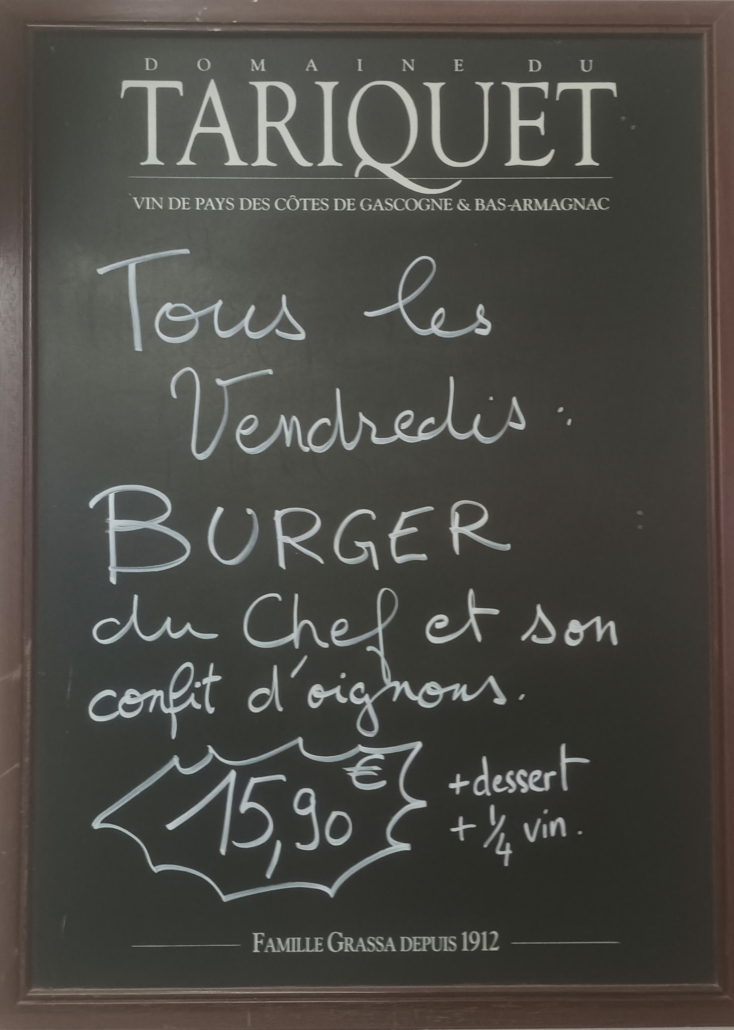 DOMAINE DU
TARIQUET
VIN DE PAYS DES CÔTES DE GASCOGNE & BAS-ARMAGNAC
Tous les
Vendredis :
BURGER
du Chef et son
confit d'oignons.
15,90 €
+ dessert
+ 1/4 vin.
FAMILLE GRASSA DEPUIS 1912